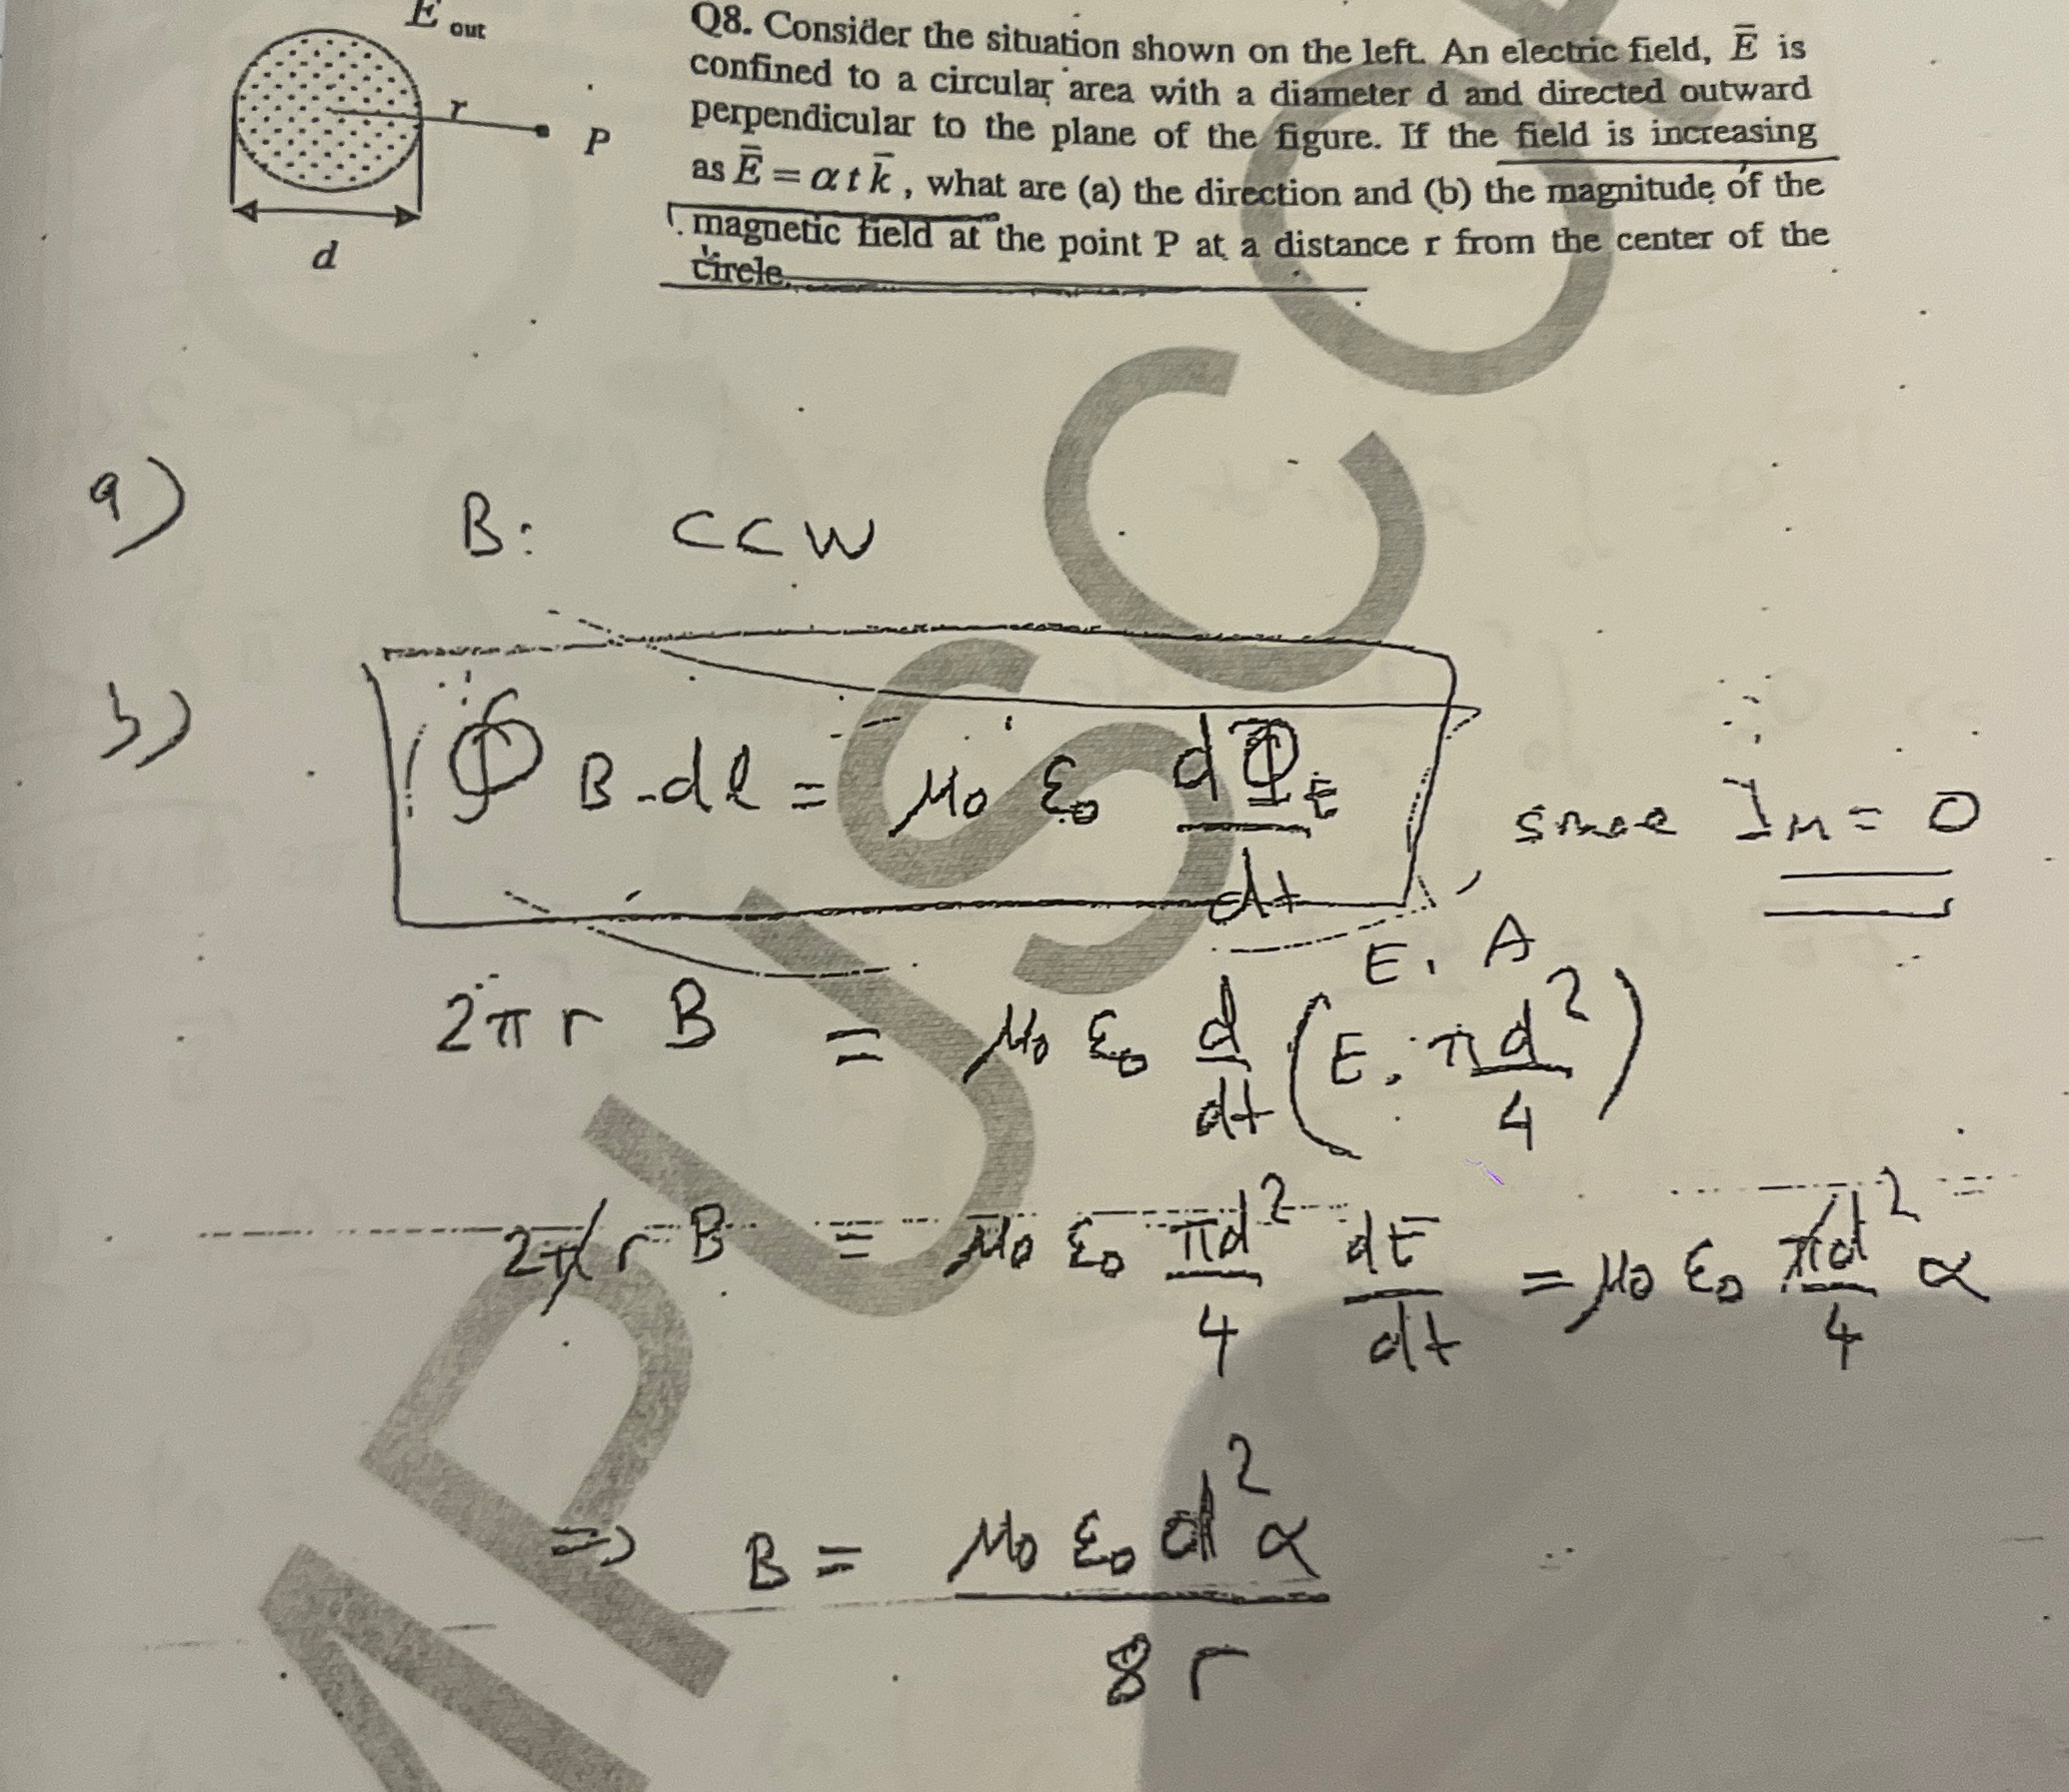 E out
r
P
d
Q8. Consider the situation shown on the left. An electric field, E̅ is
confined to a circular area with a diameter d and directed outward
perpendicular to the plane of the figure. If the field is increasing
as E̅ = α t k̅ , what are (a) the direction and (b) the magnitude of the
magnetic field at the point P at a distance r from the center of the
circle.
a) B: CCW
b) ∮ B.dl = μ0 ε0 dΦE/dt , since In = 0
E. A
2πr B = μ0 ε0 d/dt (E. πd²/4)
2πr B = μ0 ε0 πd²/4 dE/dt = μ0 ε0 πd²/4 α
=> B = μ0 ε0 d²α / 8r
MPUSCOP